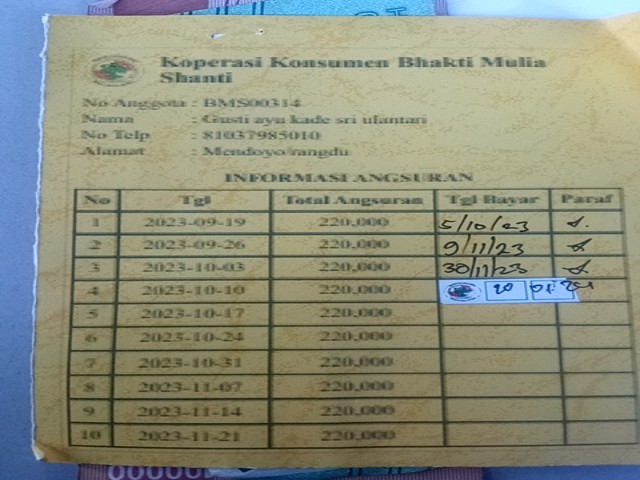 Koperasi Konsumen Bhakti Mulia
Shanti
No Anggota : BMS00314
Nama : Gusti ayu kade sri ulantari
No Telp : 81037985010
Alamat : Mendoyo/rangdu
INFORMASI ANGSURAN
No Tgl Total Angsuran Tgl Bayar Paraf
1 2023-09-19 220,000 5/10/23
2 2023-09-26 220,000 9/11/23
3 2023-10-03 220,000 30/11/23
4 2023-10-10 220,000 20 01
5 2023-10-17 220,000
6 2023-10-24 220,000
7 2023-10-31 220,000
8 2023-11-07 220,000
9 2023-11-14 220,000
10 2023-11-21 220,000